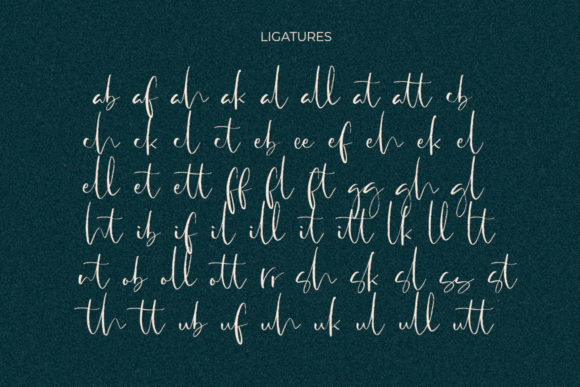 LIGATURES
ab af ah ak al all at att cb
ch ck cl ct eb ee ef eh ek el
ell et ett ff fl ft gg gh gl
ht ib if il ill it itt lk ll tt
nt ob oll ott rr sh sk sl ss st
th tt ub uf uh uk ul ull utt